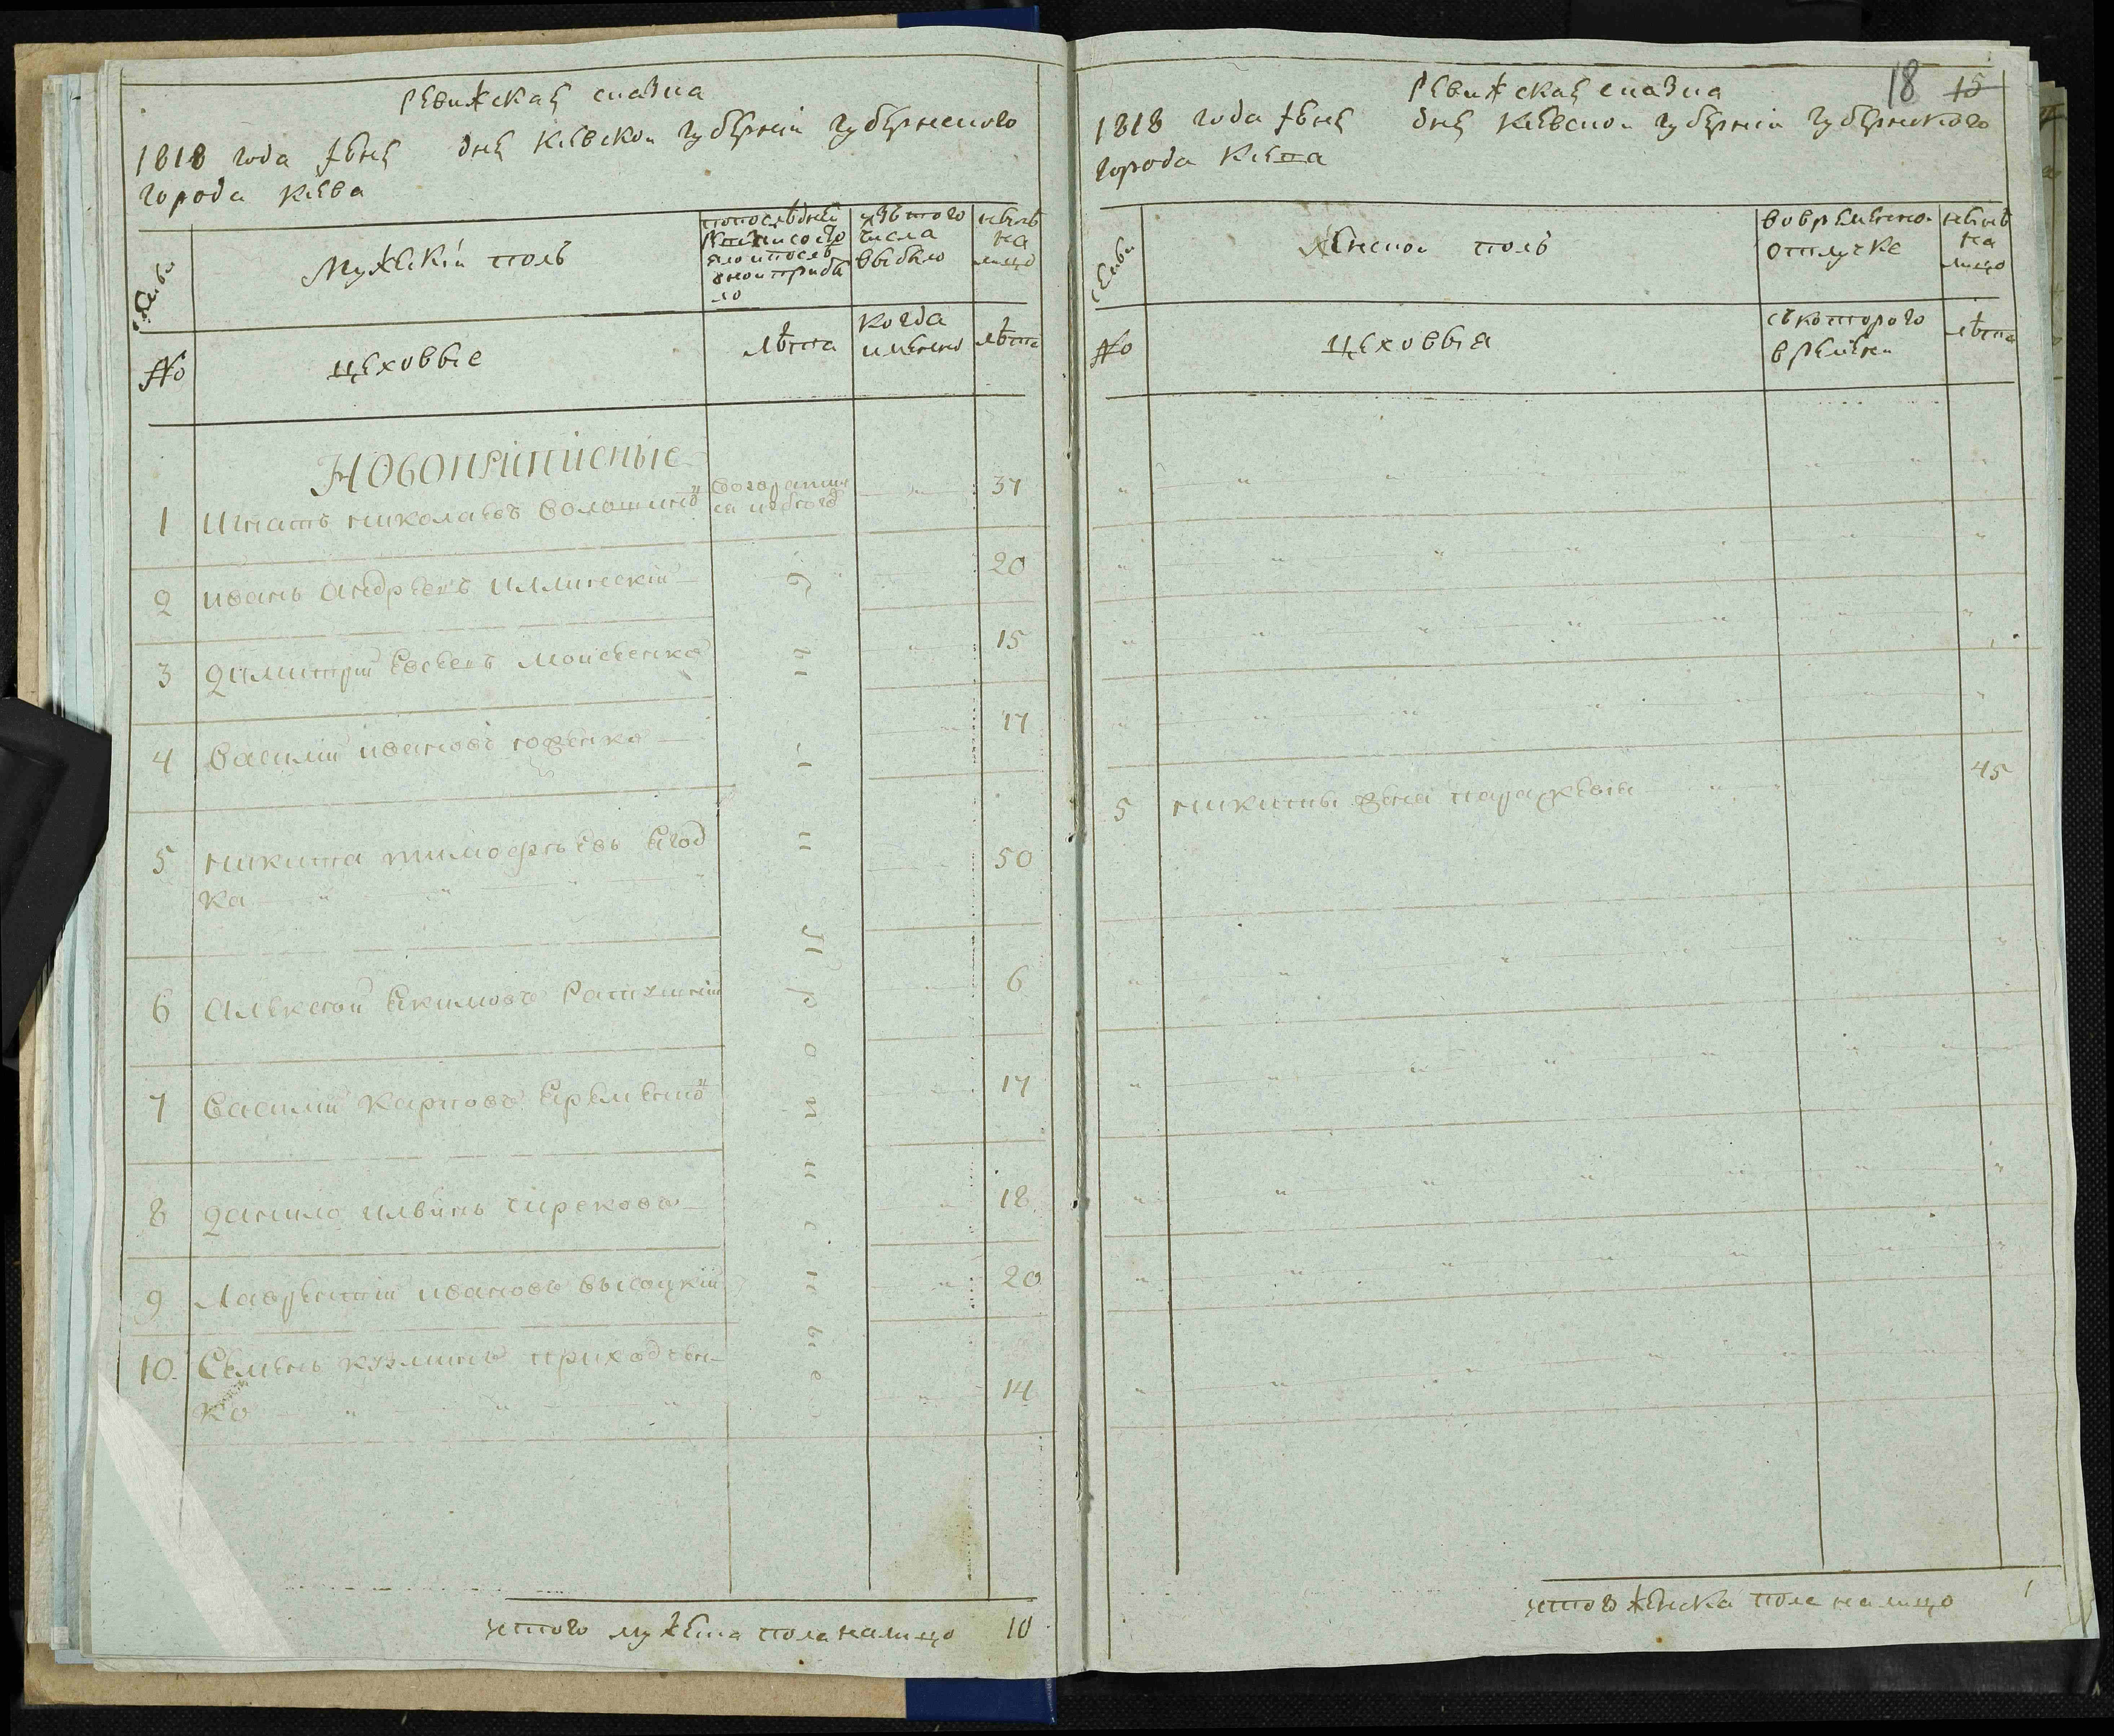 Ревижская сказка
1818 года февня дня Киевской губернии губернского
города Киева
семьи
Мужеский полъ
попоследней
ревизии состо
яло и после
оной прибы
ло
изътого
числа
выбыло
ныне
на
лицо
№
цеховые
лета
когда
именно
лета
Новоприписные
1 Игнатъ николаевъ Волошинъ
Возвратил
ся избегов
37
2 иванъ андреевъ иллинский 20
3 Димитрий Евсеевъ Моисеенко 15
4 Василий ивановъ юзенко 17
5 никита тимофеевъ Ягод
ка 50
6 Алексей Якимовъ 6
7 Василий Карповъ 17
8 Данило ильинъ 18
9 Лаврентий ивановъ высоцкий 20
10. Семенъ кузминъ приходьен-
ко 14
новоприписные
итого мужеска пола налицо 10
18 15
Ревижская сказка
1818 года февня дня Киевской губернии губернского
города Киева
семьи
Женской полъ
вовременной
отлучке
ныне
на
лицо
№
цеховыя
скоторого
времени
лета
5 никиты жена параскевия 45
итого женска пола налицо 1